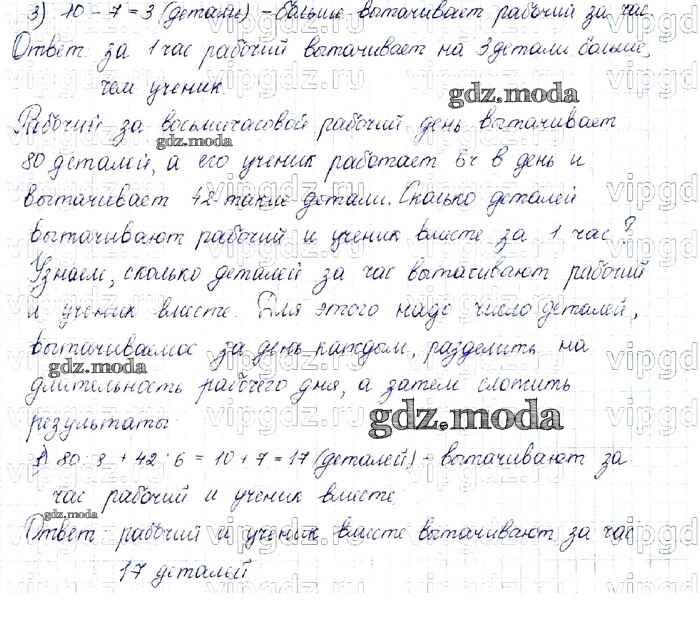 3) 10 - 7 = 3 (детали) - больше вытачивает рабочий за час
Ответ за 1 час рабочий вытачивает на 3 детали больше,
чем ученик.
gdz.moda
Рабочий за восьмичасовой рабочий день вытачивает
gdz.moda
80 деталей, а его ученик работает 6 ч в день и
вытачивает 42 такие детали. Сколько деталей
вытачивают рабочий и ученик вместе за 1 час?
Узнаем, сколько деталей за час вытачивают рабочий
и ученик вместе. Для этого надо число деталей,
вытачиваемое за день каждым, разделить на
gdz.moda
длительность рабочего дня, а затем сложить
gdz.moda
результаты
1) 80 : 8 + 42 : 6 = 10 + 7 = 17 (деталей) - вытачивают за
час рабочий и ученик вместе.
gdz.moda
Ответ рабочий и ученик вместе вытачивают за час
17 деталей